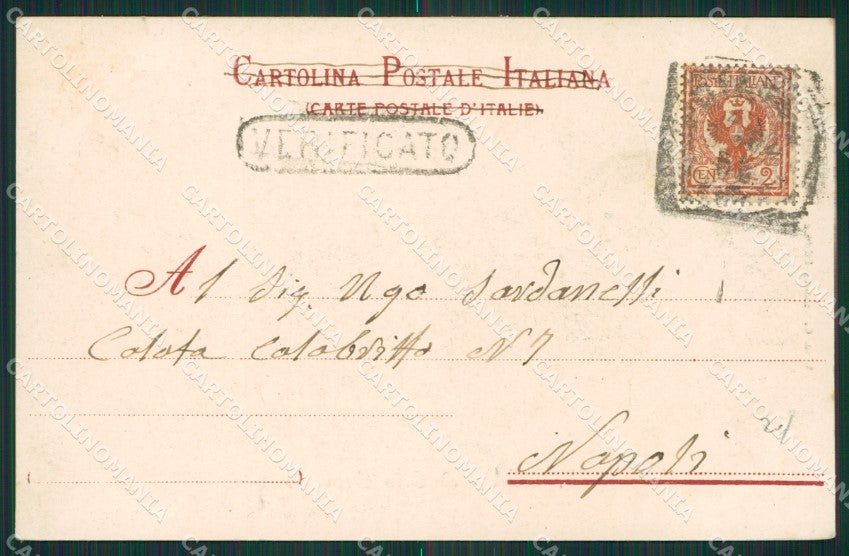 CARTOLINA POSTALE ITALIANA
(CARTE POSTALE D'ITALIE)
VERIFICATO
POSTE ITALIANE
CENT. 2
Al Sig. Ugo Sardanelli
Calata Calabritto N 7
Napoli
CARTOLINOMANIA